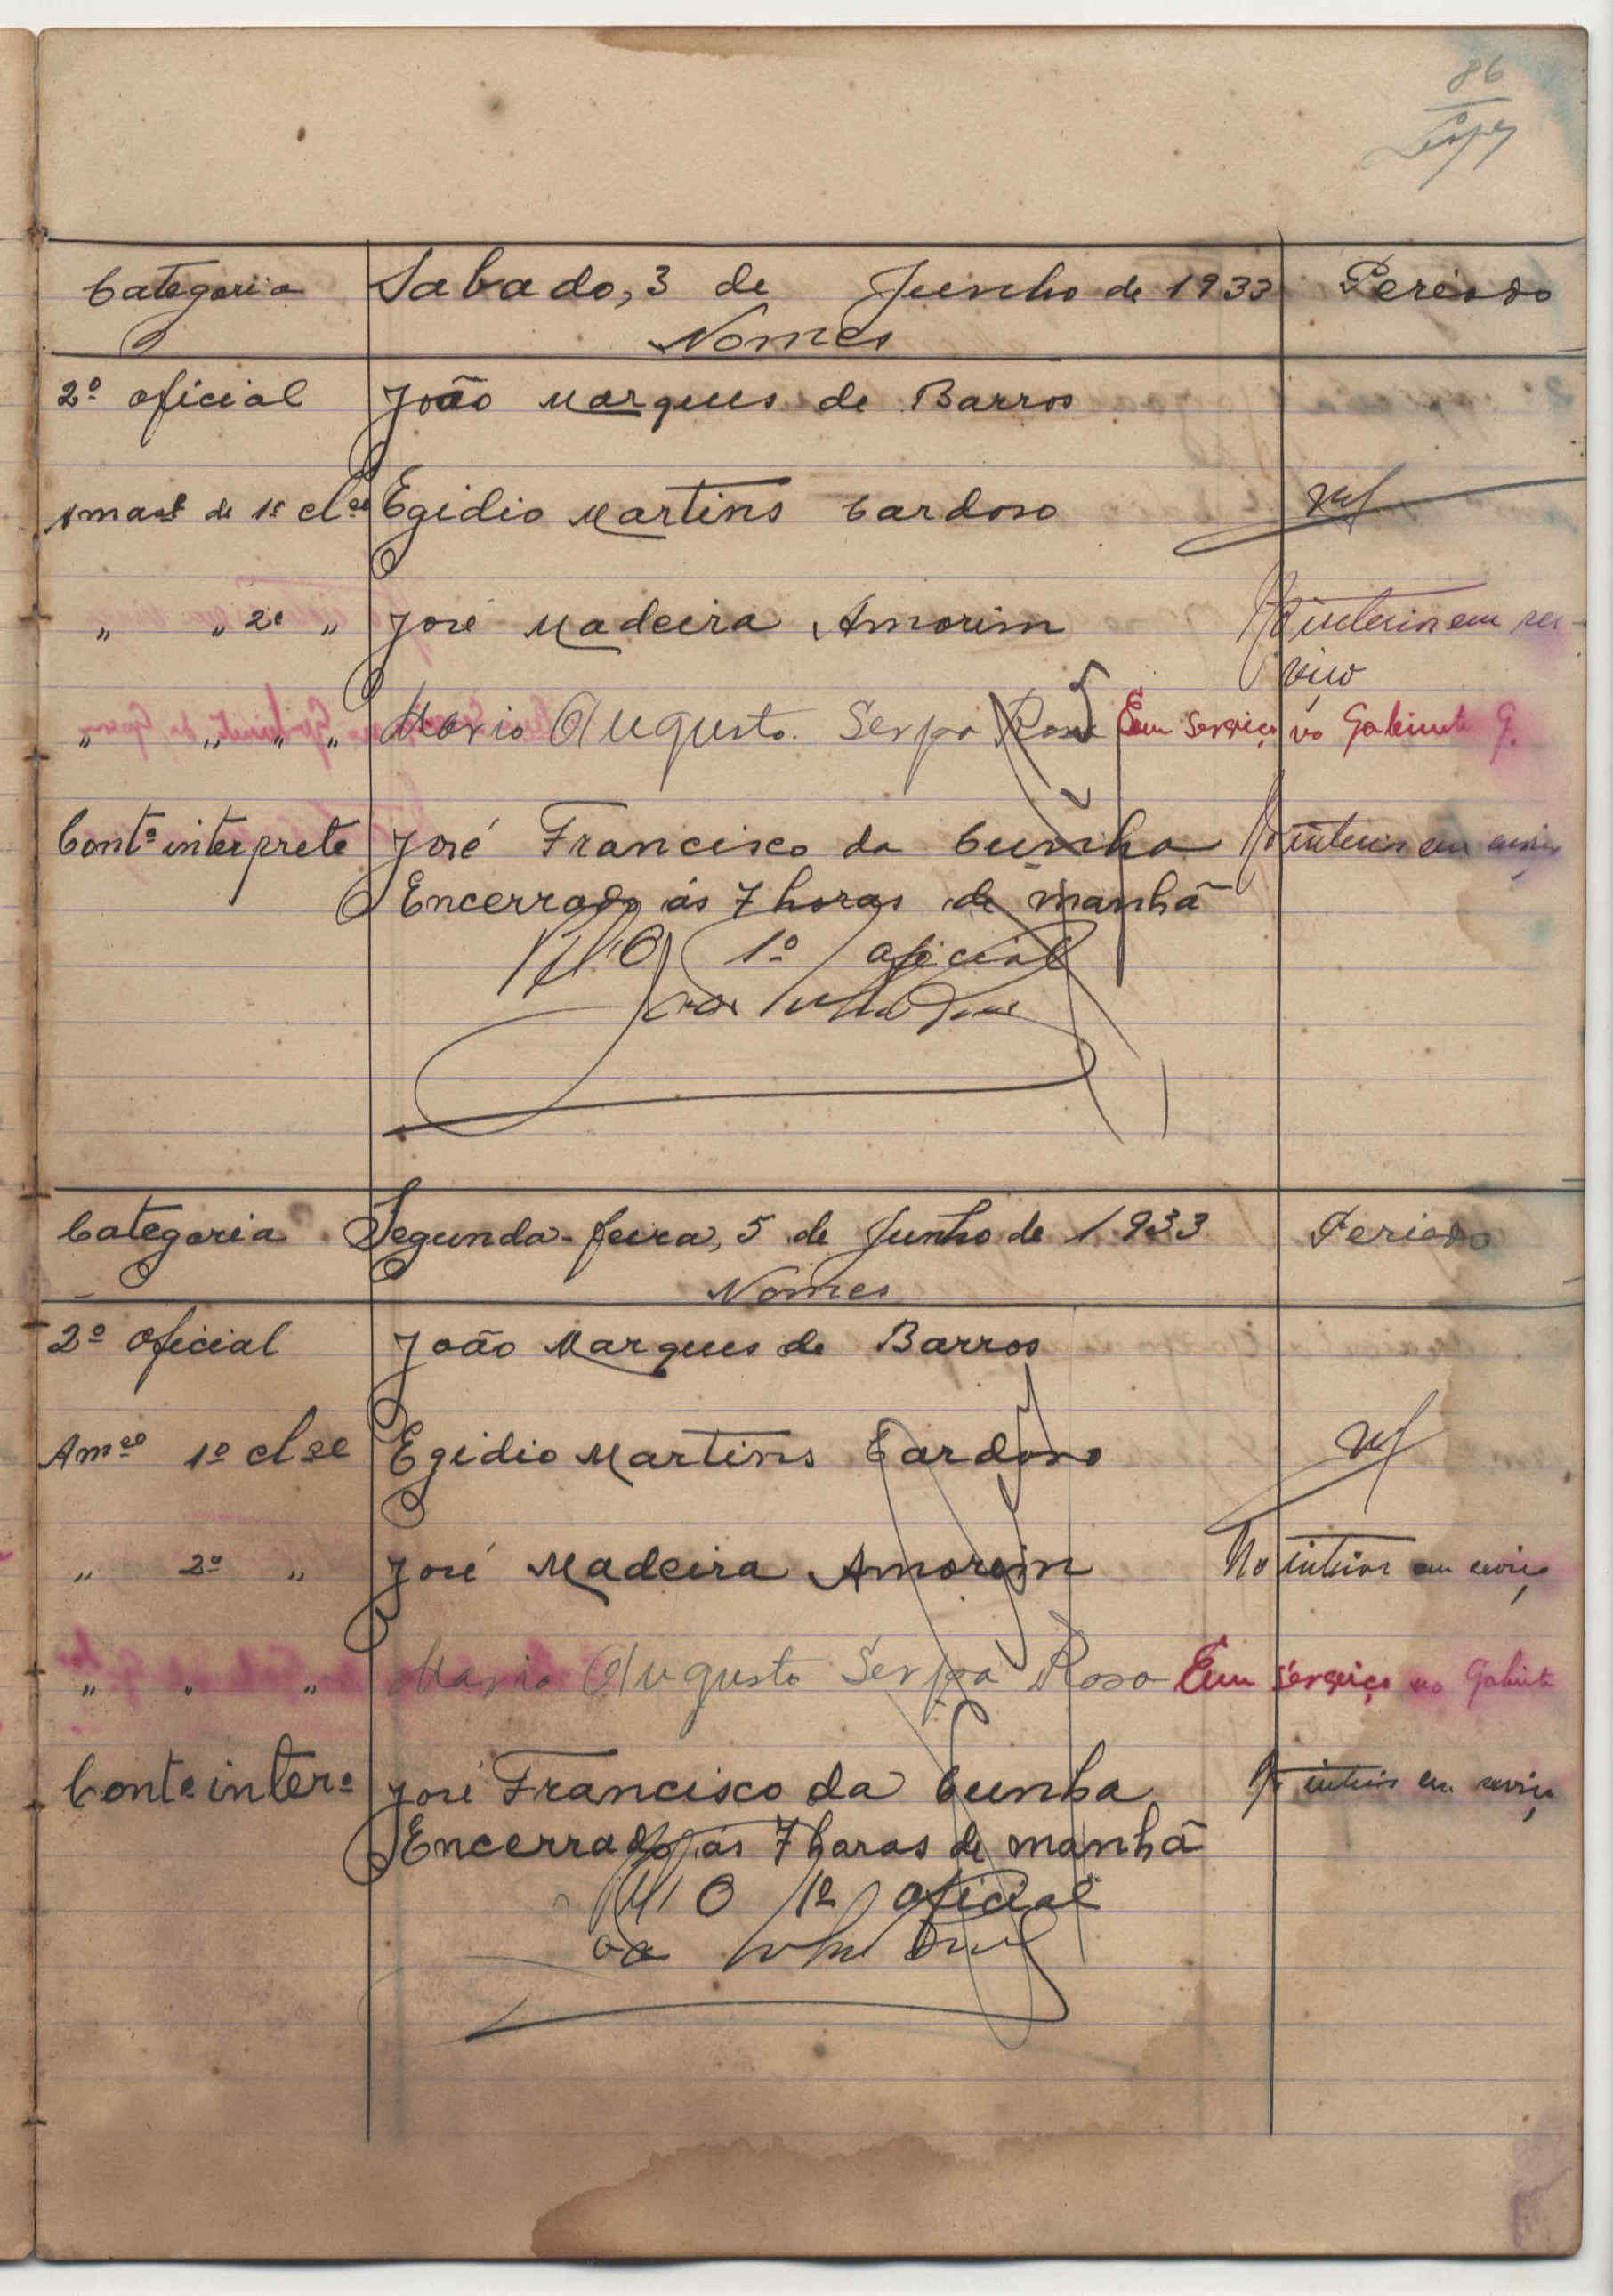 86
Categoria Sabado, 3 de Junho de 1933 Periodo
Nomes
2º oficial João Marques de Barros
Amase de 1ª clse Egidio Martins Cardoso
" " 2ª " José Madeira Amorim No interior em ser-
viço
" " " " Mario Augusto Serpa Rosa Em serviço no Gabinete G.
Contº interprete José Francisco da Cunha No interior em serviço
Encerrado ás 7 horas da manhã
O 1º oficial
Categoria Segunda-feira, 5 de Junho de 1933 Periodo
Nomes
2º oficial João Marques de Barros
Amse 1ª clse Egidio Martins Cardoso
" 2ª " José Madeira Amorim No interior em serviço
" " " Mario Augusto Serpa Rosa Em serviço no Gabinete
Conte interº José Francisco da Cunha No interior em serviço
Encerrado ás 7 horas da manhã
O 1º oficial